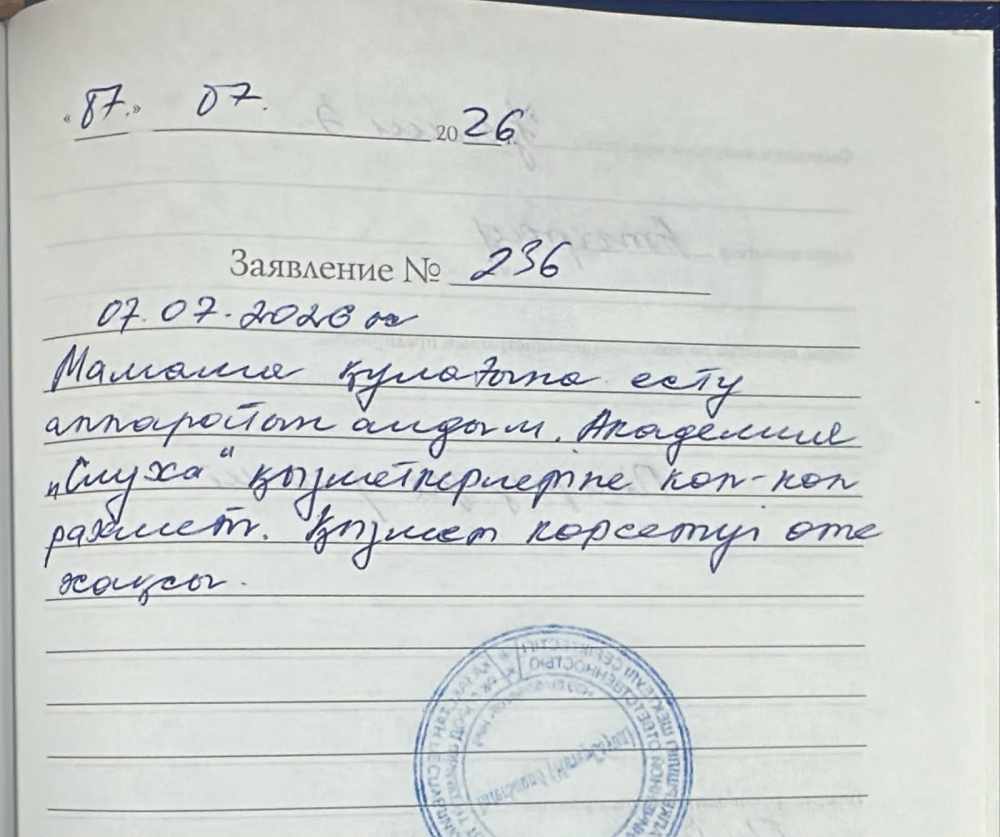 «07.» 07. 2026
Заявление № 236
07.07.2026 ж
Мамама құлағына есту
аппаротын алдым. Академия
„Слуха“ қызметкерлеріне коп-коп
рахмет. Қызмет корсетуі оте
жақсы.